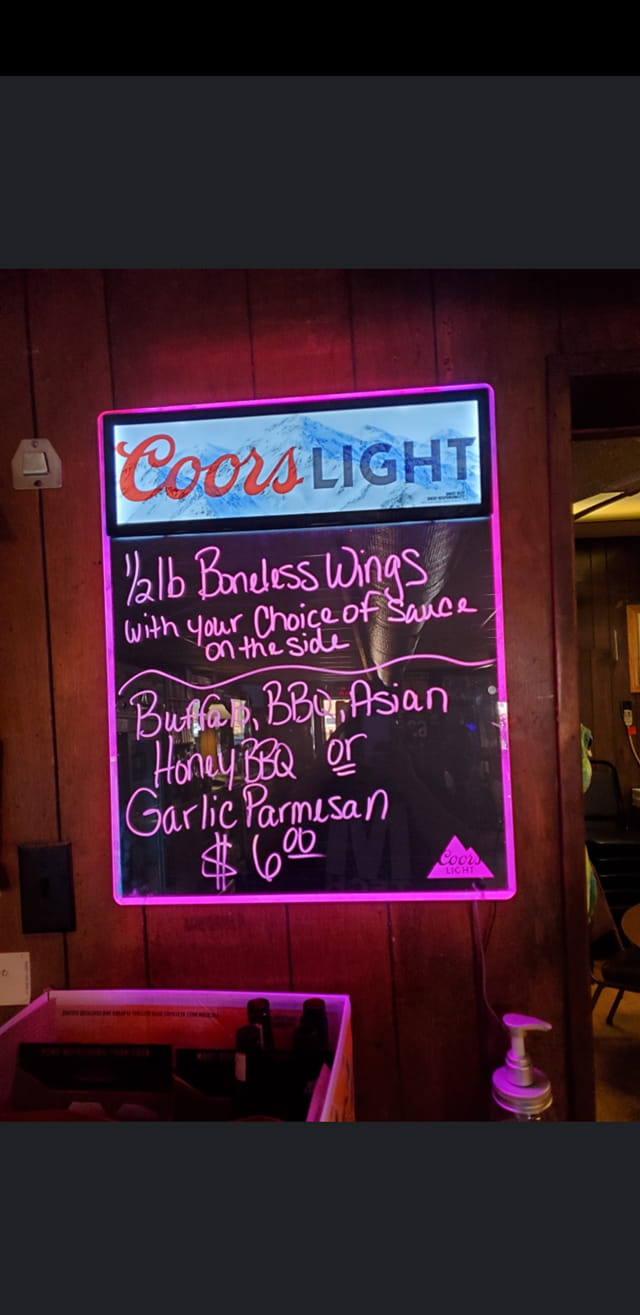 Coors LIGHT
1/2lb Boneless Wings
with your Choice of Sauce
on the side
Buffalo, BBQ, Asian
Honey BBQ or
Garlic Parmesan
$6.00
Coors
LIGHT